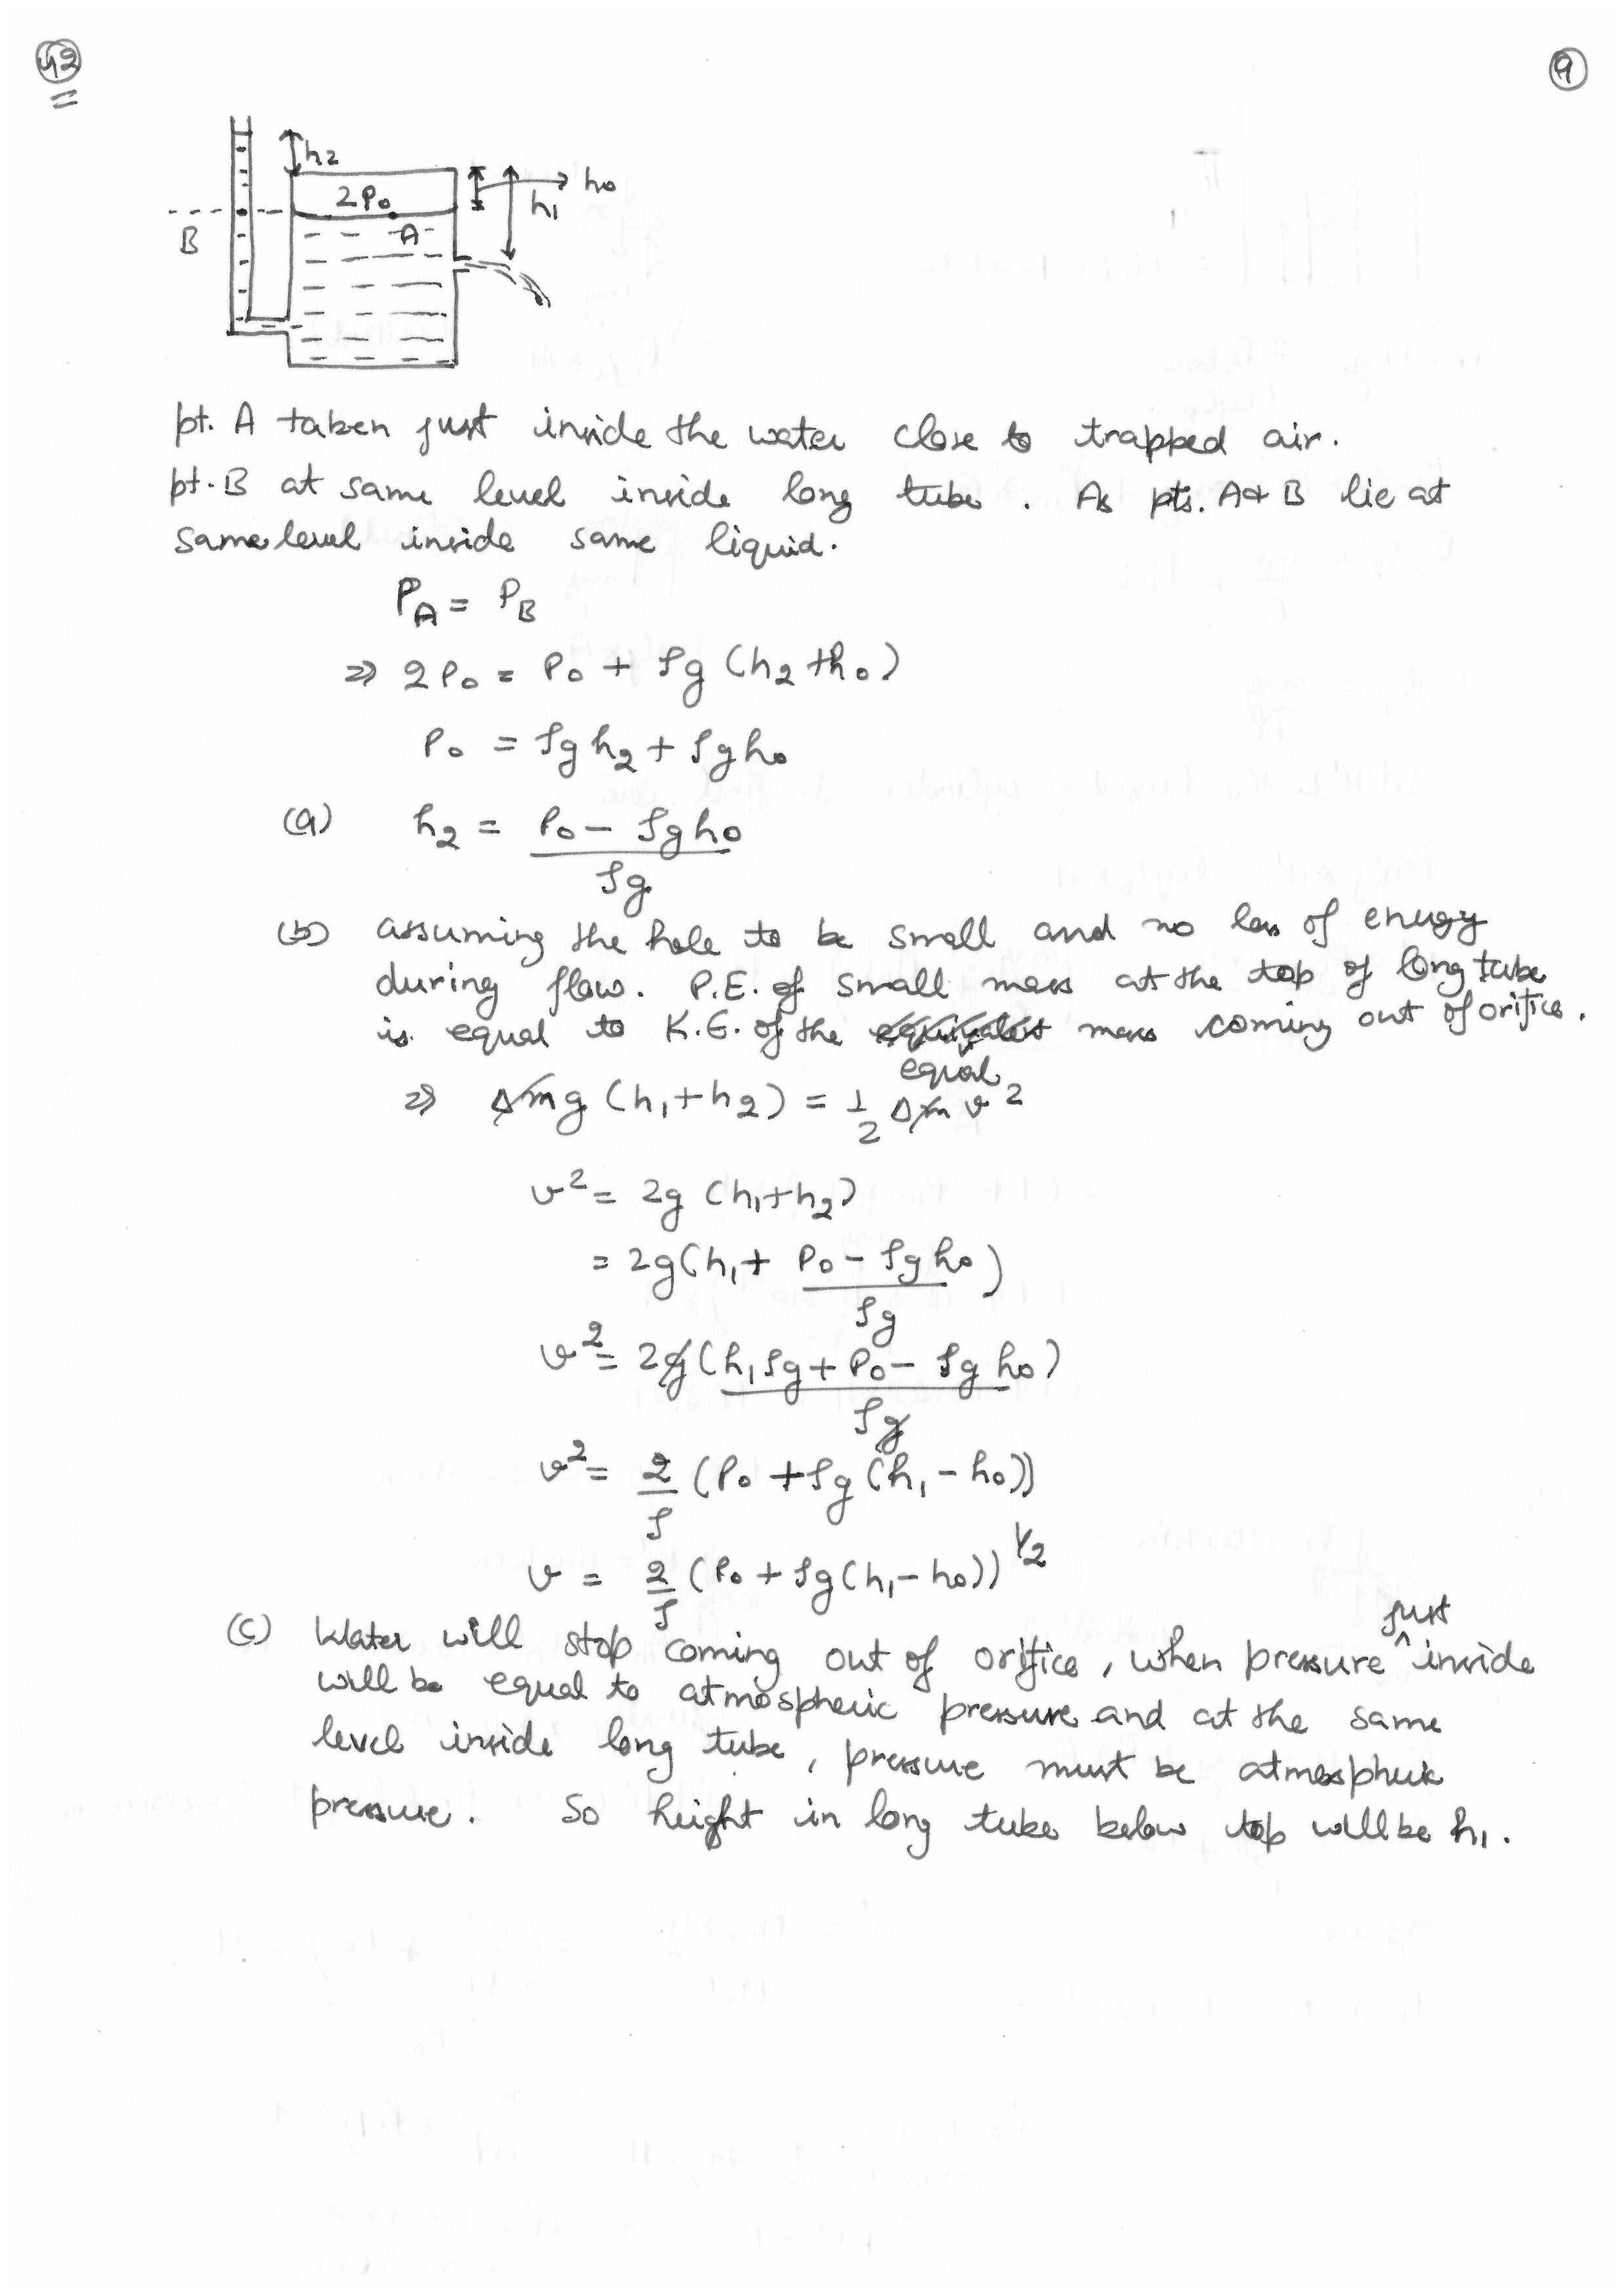 42
9
h2
h0
2P0
h1
A
B
pt. A taken just inside the water close to trapped air.
pt. B at same level inside long tube. As pts. A & B lie at
same level inside same liquid.
PA = PB
⇒ 2P0 = P0 + ρg (h2 + h0)
P0 = ρgh2 + ρgh0
(a) h2 = (P0 − ρgh0) / ρg
(b) assuming the hole to be small and no loss of energy
during flow. P.E. of small mass at the top of long tube
is equal to K.E. of the equal mass coming out of orifice.
⇒ Δmg (h1+h2) = 1/2 Δm v²
v² = 2g (h1+h2)
= 2g(h1 + (P0 − ρgh0) / ρg)
v² = 2g (h1ρg + P0 − ρgh0) / ρg
v² = 2/ρ (P0 + ρg (h1 − h0))
v = 2/ρ (P0 + ρg(h1 − h0))^1/2
(c) Water will stop coming out of orifice, when pressure just inside
will be equal to atmospheric pressure and at the same
level inside long tube, pressure must be atmospheric
pressure. So height in long tube below top will be h1.